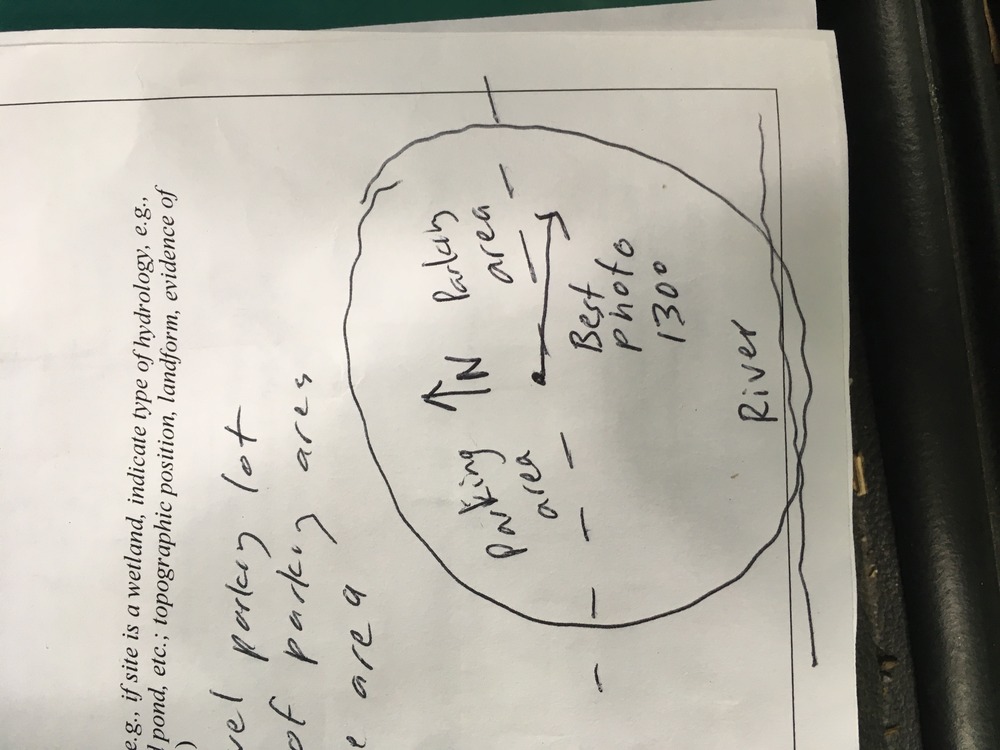 e.g., if site is a wetland, indicate type of hydrology, e.g.,
pond, etc.; topographic position, landform, evidence of
)
vel parkng lot
of parkng ares
area
Parking
area
↑N
Parkng
area
Best
photo
1300
River